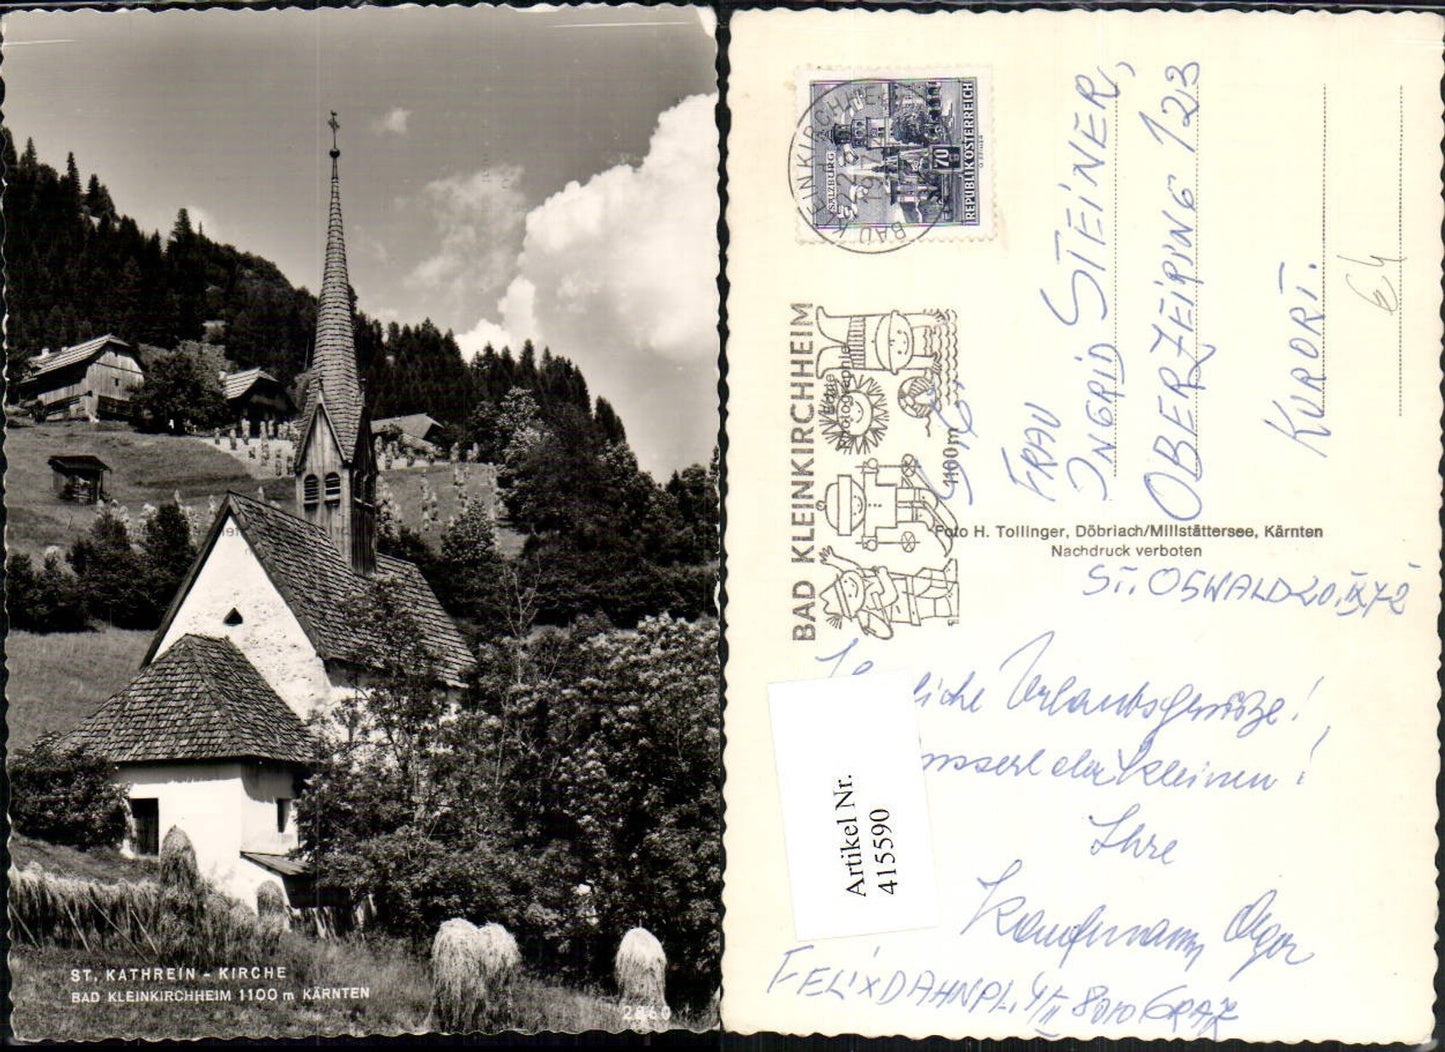 ST. KATHREIN - KIRCHE
BAD KLEINKIRCHHEIM 1100 m KÄRNTEN
2860
BAD KLEINKIRCHHEIM
SALZBURG
70
REPUBLIK ÖSTERREICH
BAD KLEINKIRCHHEIM
1100 m
Echte
Photographie
FRAU
INGRID STEINER,
OBERZEIRING 123
KURORT.
Foto H. Tollinger, Döbriach/Millstättersee, Kärnten
Nachdruck verboten
ST. OSWALD 20.IX.72
Urlaubsgrüße!
der Kleinen!
Ihre
Kaufmann Olga
FELIX DAHNPL. 4/II 8010 GRAZ
Artikel Nr.
415590